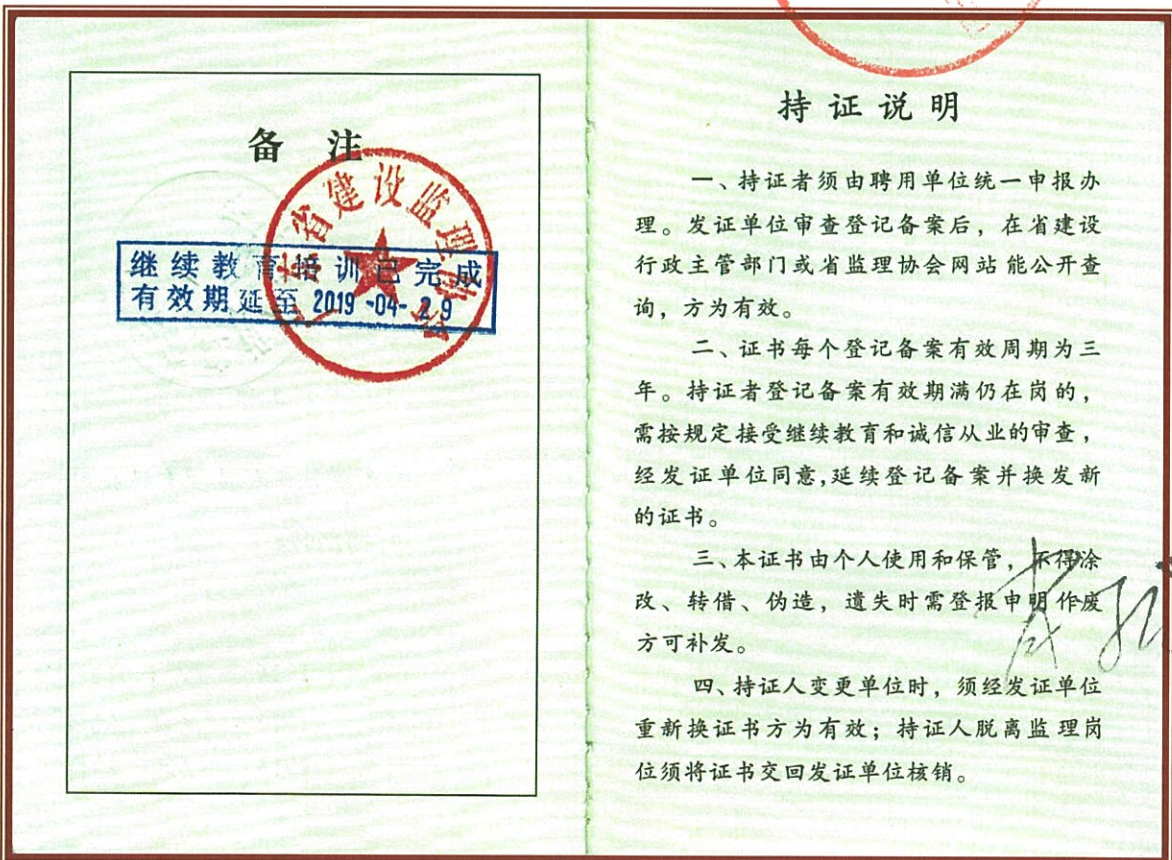 备 注
省建设监理协会
继续教育培训已完成
有效期延至 2019-04-29
持证说明
一、持证者须由聘用单位统一申报办
理。发证单位审查登记备案后，在省建设
行政主管部门或省监理协会网站能公开查
询，方为有效。
二、证书每个登记备案有效周期为三
年。持证者登记备案有效期满仍在岗的，
需按规定接受继续教育和诚信从业的审查，
经发证单位同意,延续登记备案并换发新
的证书。
三、本证书由个人使用和保管，不得涂
改、转借、伪造，遗失时需登报申明作废
方可补发。
四、持证人变更单位时，须经发证单位
重新换证书方为有效；持证人脱离监理岗
位须将证书交回发证单位核销。